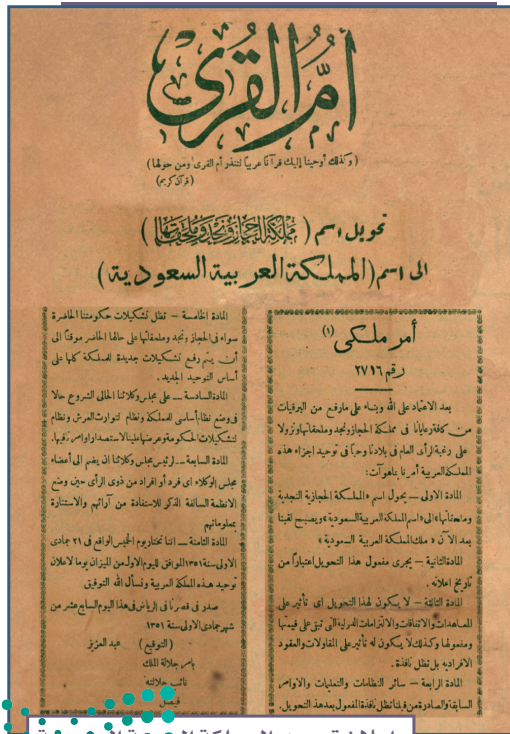 أم القرى
(وكذلك أوحينا إليك قرآنا عربيا لتنذر أم القرى ومن حولها)
(قرآن كريم)
تحويل اسم (مملكة الحجاز ونجد وملحقاتها)
الى اسم (المملكة العربية السعودية)
أمر ملكى (١)
رقم ٢٧١٦
بعد الاعتماد على الله وبناء على مارفع من البرقيات
من كافة رعايانا فى مملكة الحجاز ونجد وملحقاتها ونزولا
على رغبة الرأى العام فى بلادنا وحبا فى توحيد اجزاء هذه
المملكة العربية أمرنا بما هو آت:
المادة الاولى – يحول اسم «المملكة الحجازية النجدية
وملحقاتها» الى «اسم المملكة العربية السعودية» ويصبح لقبنا
بعد الآن «ملك المملكة العربية السعودية»
المادة الثانية – يجرى مفعول هذا التحويل اعتبارا من
تاريخ اعلانه.
المادة الثالثة – لا يكون لهذا التحويل اى تأثير على
المعاهدات والاتفاقات والالتزامات الدولية التى تبقى على قيمتها
ومفعولها وكذلك لا يكون له تأثير على المقاولات والعقود
الافرادية بل تظل نافذة.
المادة الرابعة – سائر النظامات والتعليمات والاوامر
السابقة والصادرة من قبلنا تظل نافذة المفعول بعد هذا التحويل.
المادة الخامسة – تظل تشكيلات حكومتنا الحاضرة
سواء فى الحجاز ونجد وملحقاتها على حالها الحاضر موقتا الى
أن يتم وضع تشكيلات جديدة للمملكة كلها على
أساس التوحيد الجديد.
المادة السادسة – على مجلس وكلائنا الحالى الشروع حالا
فى وضع نظام أساسى للمملكة ونظام لتوارث العرش ونظام
لتشكيلات الحكومة وعرضها علينا لاستصدار اوامرنا فيها.
المادة السابعة – لرئيس مجلس وكلائنا ان يضم الى أعضاء
مجلس الوكلاء اى فرد أو افراد من ذوى الرأى حين وضع
الانظمة السالفة الذكر للاستفادة من آرائهم والاستنارة
بمعلوماتهم
المادة الثامنة – اننا نختار يوم الخميس الواقع فى ٢١ جمادى
الاولى سنة ١٣٥١ الموافق لليوم الاول من الميزان يوما لاعلان
توحيد هذه المملكة العربية ونسأل الله التوفيق
صدر فى قصرنا فى الرياض فى هذا اليوم السابع عشر من
شهر جمادى الاولى سنة ١٣٥١
(التوقيع) عبد العزيز
بامر جلالة الملك
نائب جلالته
فيصل